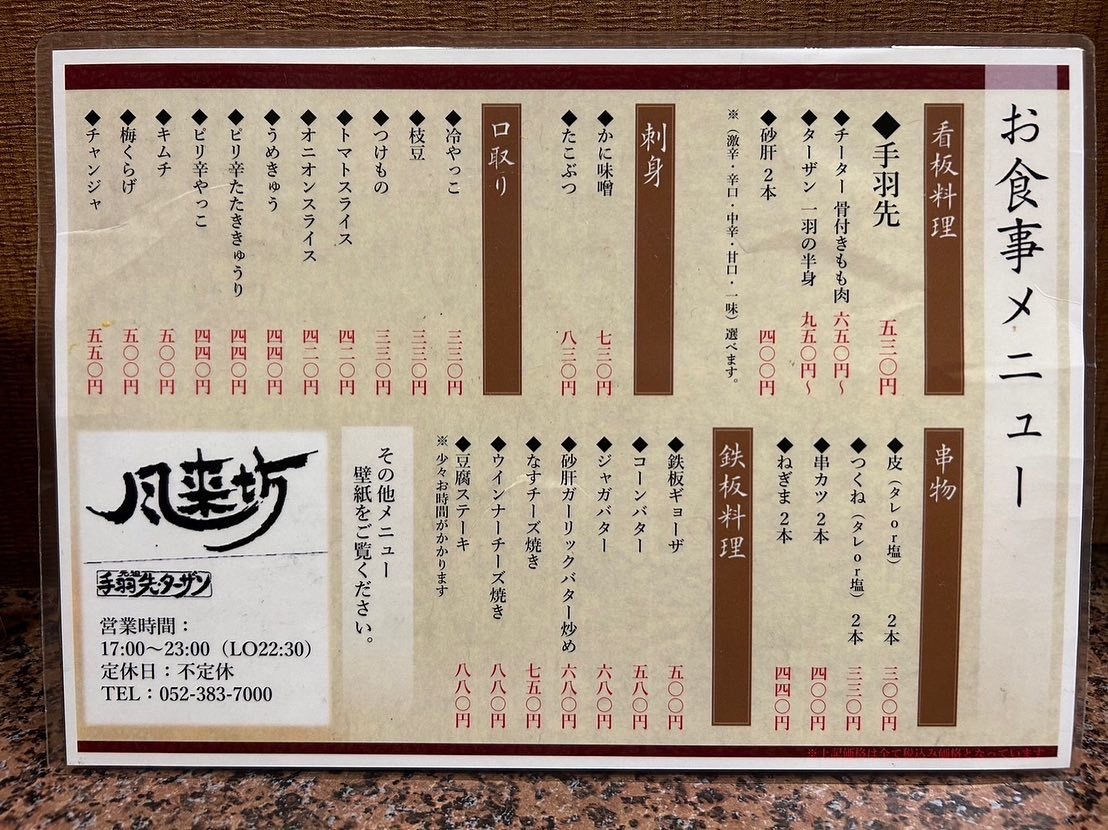 お食事メニュー
看板料理
◆手羽先 五三〇円
◆チーター 骨付きもも肉 六五〇円〜
◆ターザン 一羽の半身 九五〇円〜
◆砂肝 2本 四〇〇円
※(激辛・辛口・中辛・甘口・一味)選べます。
刺身
◆かに味噌 七三〇円
◆たこぶつ 八三〇円
口取り
◆冷やっこ 三三〇円
◆枝豆 三三〇円
◆つけもの 三三〇円
◆トマトスライス 四二〇円
◆オニオンスライス 四二〇円
◆うめきゅう 四四〇円
◆ピリ辛たたききゅうり 四四〇円
◆ピリ辛やっこ 四四〇円
◆キムチ 五〇〇円
◆梅くらげ 五〇〇円
◆チャンジャ 五五〇円
串物
◆皮(タレor塩) 2本 三〇〇円
◆つくね(タレor塩) 2本 三三〇円
◆串カツ 2本 四〇〇円
◆ねぎま 2本 四四〇円
鉄板料理
◆鉄板ギョーザ 五〇〇円
◆コーンバター 五八〇円
◆ジャガバター 六八〇円
◆砂肝ガーリックバター炒め 六八〇円
◆なすチーズ焼き 七五〇円
◆ウインナーチーズ焼き 八八〇円
◆豆腐ステーキ 八八〇円
※ 少々お時間がかかります
その他メニュー
壁紙をご覧ください。
風来坊
元祖手羽先ターザン
営業時間:
17:00〜23:00(LO22:30)
定休日:不定休
TEL:052-383-7000
※上記価格は全て税込み価格となっています